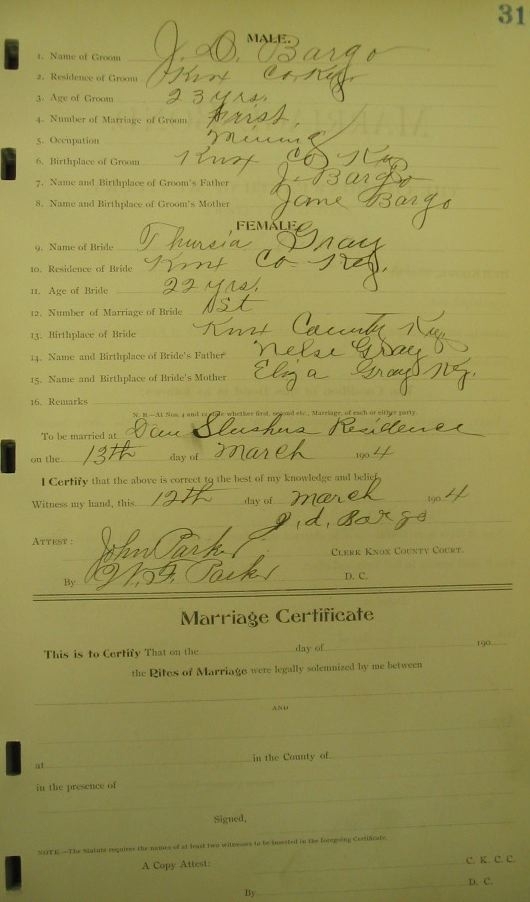 31
MALE.
1. Name of Groom J. D. Bargo
2. Residence of Groom Knx Co. Ky.
3. Age of Groom 23 yrs.
4. Number of Marriage of Groom First.
5. Occupation Mining
6. Birthplace of Groom Knx Co Ky
7. Name and Birthplace of Groom's Father J. Bargo
8. Name and Birthplace of Groom's Mother Jane Bargo
FEMALE.
9. Name of Bride Thursia Gray
10. Residence of Bride Knx Co Ky.
11. Age of Bride 22 yrs.
12. Number of Marriage of Bride 1st
13. Birthplace of Bride Knx County Ky
14. Name and Birthplace of Bride's Father Nelse Gray
15. Name and Birthplace of Bride's Mother Eliza Gray Ky.
16. Remarks
N. B.—At Nos. 4 and 12 state whether first, second etc., Marriage, of each or either party.
To be married at Dan Slushers Residence
on the 13th day of March 1904
I Certify that the above is correct to the best of my knowledge and belief.
Witness my hand, this 12th day of March 1904
J. d. Bargo
ATTEST: John Parker CLERK KNOX COUNTY COURT.
By W. F. Parker D. C.
Marriage Certificate
This is to Certify That on the day of 190
the Rites of Marriage were legally solemnized by me between
AND
at in the County of
in the presence of
Signed,
NOTE.—The Statute requires the names of at least two witnesses to be inserted in the foregoing Certificate.
A Copy Attest: C. K. C. C.
By D. C.